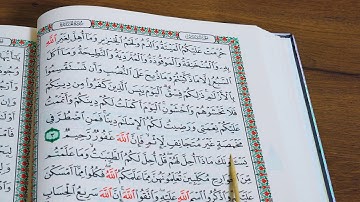 حُرِّمَتْ عَلَيْكُمُ الْمَيْتَةُ وَالدَّمُ وَلَحْمُ الْخِنزِيرِ وَمَا أُهِلَّ لِغَيْرِ اللَّهِ
بِهِ وَالْمُنْخَنِقَةُ وَالْمَوْقُوذَةُ وَالْمُتَرَدِّيَةُ وَالنَّطِيحَةُ وَمَا أَكَلَ
السَّبُعُ إِلَّا مَا ذَكَّيْتُمْ وَمَا ذُبِحَ عَلَى النُّصُبِ وَأَن تَسْتَقْسِمُوا
بِالْأَزْلَامِ ذَٰلِكُمْ فِسْقٌ الْيَوْمَ يَئِسَ الَّذِينَ كَفَرُوا مِن دِينِكُمْ
فَلَا تَخْشَوْهُمْ وَاخْشَوْنِ الْيَوْمَ أَكْمَلْتُ لَكُمْ دِينَكُمْ وَأَتْمَمْتُ
عَلَيْكُمْ نِعْمَتِي وَرَضِيتُ لَكُمُ الْإِسْلَامَ دِينًا فَمَنِ اضْطُرَّ فِي
مَخْمَصَةٍ غَيْرَ مُتَجَانِفٍ لِّإِثْمٍ فَإِنَّ اللَّهَ غَفُورٌ رَّحِيمٌ ٣
يَسْأَلُونَكَ مَاذَا أُحِلَّ لَهُمْ قُلْ أُحِلَّ لَكُمُ الطَّيِّبَاتُ وَمَا عَلَّمْتُم
مِّنَ الْجَوَارِحِ مُكَلِّبِينَ تُعَلِّمُونَهُنَّ مِمَّا عَلَّمَكُمُ اللَّهُ فَكُلُوا مِمَّا أَمْسَكْنَ
عَلَيْكُمْ وَاذْكُرُوا اسْمَ اللَّهِ عَلَيْهِ وَاتَّقُوا اللَّهَ إِنَّ اللَّهَ سَرِيعُ الْحِسَابِ